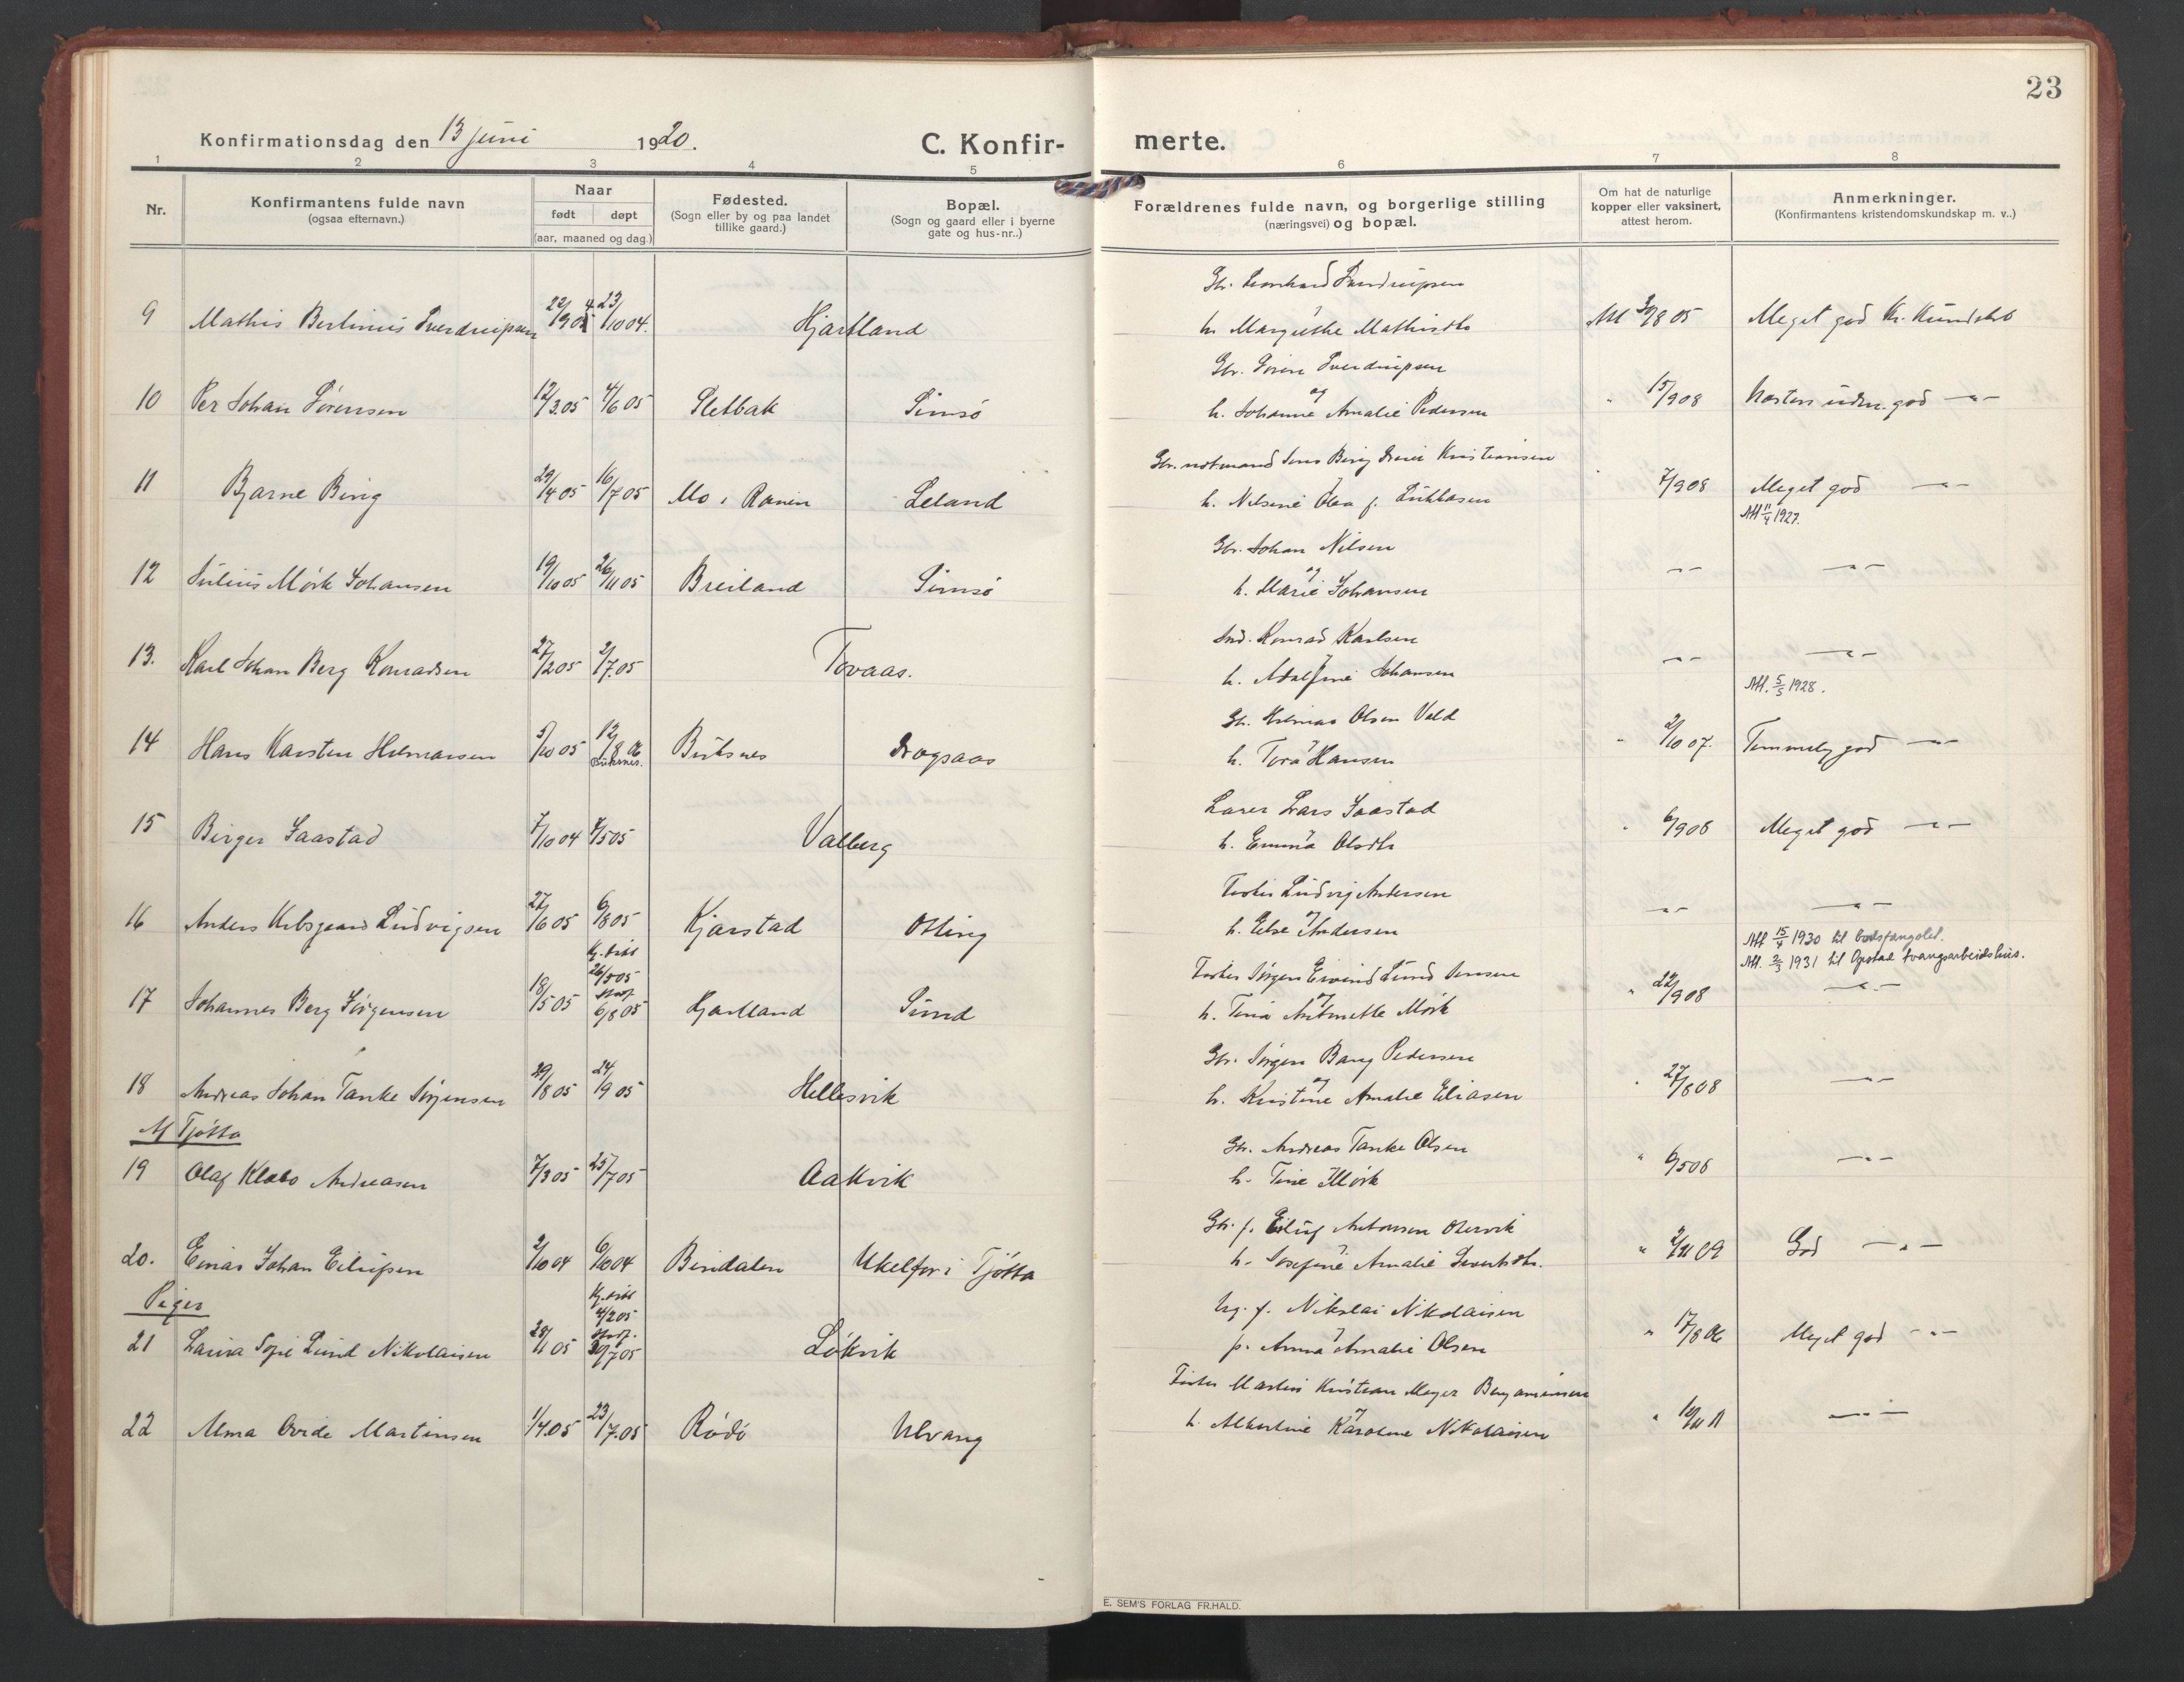 23
Konfirmationsdag den 13 juni 1920.
C. Konfir-
merte.
1 2 3 4 5 6 7 8
Nr.
Konfirmantens fulde navn
(ogsaa efternavn.)
Naar
født døpt
(aar, maaned og dag.)
Fødested.
(Sogn eller by og paa landet
tillike gaard.)
Bopæl.
(Sogn og gaard eller i byerne
gate og hus-nr..)
Forældrenes fulde navn, og borgerlige stilling
(næringsvei) og bopæl.
Om hat de naturlige
kopper eller vaksinert,
attest herom.
Anmerkninger.
(Konfirmantens kristendomskundskap m. v..)
Gbr. Leonhard Sverdrupsen
9 Mathis Berlinius Sverdrupsen 22/9 04 23/10 04. Hjartland
og
h. Margrethe Mathisdtr Att 30/8 05 Meget god Kr. Kundskab
Gbr. Søren Sverdrupsen
10 Per Johan Sørensen 12/3.05 4/6 05 Sletbak Simsø
og
h. Johanna Amalie Pedersen " 15/9 08 Næsten udm. god —"—
Gbr. notmand Jens Bing Kristiansen
11 Bjarne Bing 29/4 05 16/7 05 Mo i Ranen Leland
h. Nilsine Olea f. Lukkasen " 7/9 08 Meget god —"—
Att 11/4 1927.
Gbr. Johan Nilsen
12 Julius Mørk Johansen 19/10 05 26/11 05 Breiland Simsø
og
h. Marie Johansen —"— —"—
Ind. Konrad Karlsen
13. Karl Johan Berg Konradsen 27/2 05 2/7.05 Tovaas.
h. Adolfine Johansen —"— —"—
Att. 5/5 1928.
Gbr. Hilmar Olsen Vold
14 Hans Karsten Hilmarsen 5/10 05 12/8 06 Buksnes. Buksnes Dragsaas
h. Tora Hansen " 2/10 07. Temmelig god —"—
Lærer Lars Saastad
15 Birger Saastad 7/10 04 7/5 05 Valberg
h. Emma Olsdtr " 6/9 06 Meget god —"—
Fisker Ludvig Andersen
16 Anders Ludvigsen 27/6 05 6/8 05 Kjærstad Olling
h. Else Andersen —"— —"—
Att 15/4 1930 til bodsfængslet.
Att. 2/3 1931 til Opstad tvangsarbeidshus.
Fisker Jørgen Eivind Lund Jensen
17 Johannes Berg Jørgensen 18/5 05 26/5 05 6/8 05 Hjartland Sund
og
h. Tina Antonette Mørk " 22/9 08 —"—
Gbr. Jørgen Bang Pedersen
18 Andreas Johan Tanke Jørgensen 29/8 05 24/9 05 Hellesvik
og
h. Kristine Amalie Eliasen " 27/8 08 —"—
Af Tjøtta
Gbr. Andreas Tanke Olsen
19 Olaf Klæbo Andreasen 7/3 05 25/7 05 Aakvik
h. Tine Mørk " 6/5 06 —"—
Gbr. f. Eiluf Antonsen Olervik
20. Einar Johan Eilufsen 2/10 04 6/10 04 Bindalen Ukelfor i Tjøtta
h. Josefine Amalie Sivertsdtr. " 2/11 09 God —"—
Piger
Ug. f. Nikolai Nikolaisen
21 Laura Sofie Lund Nikolaisen 28/1 05 4/2 05 30/7 05 Løkvik
p. Anna Amalie Olsen " 17/8 06 Meget god —"—
Fisker Martin Kristian Meyer Benjaminsen
22 Alma Ovide Martinsen 1/4.05 23/7.05 Rødø Ulvang
og
h. Albertine Karoline Nikolaisen " 10/11 11 —"—
E. SEM'S FORLAG FR.HALD.